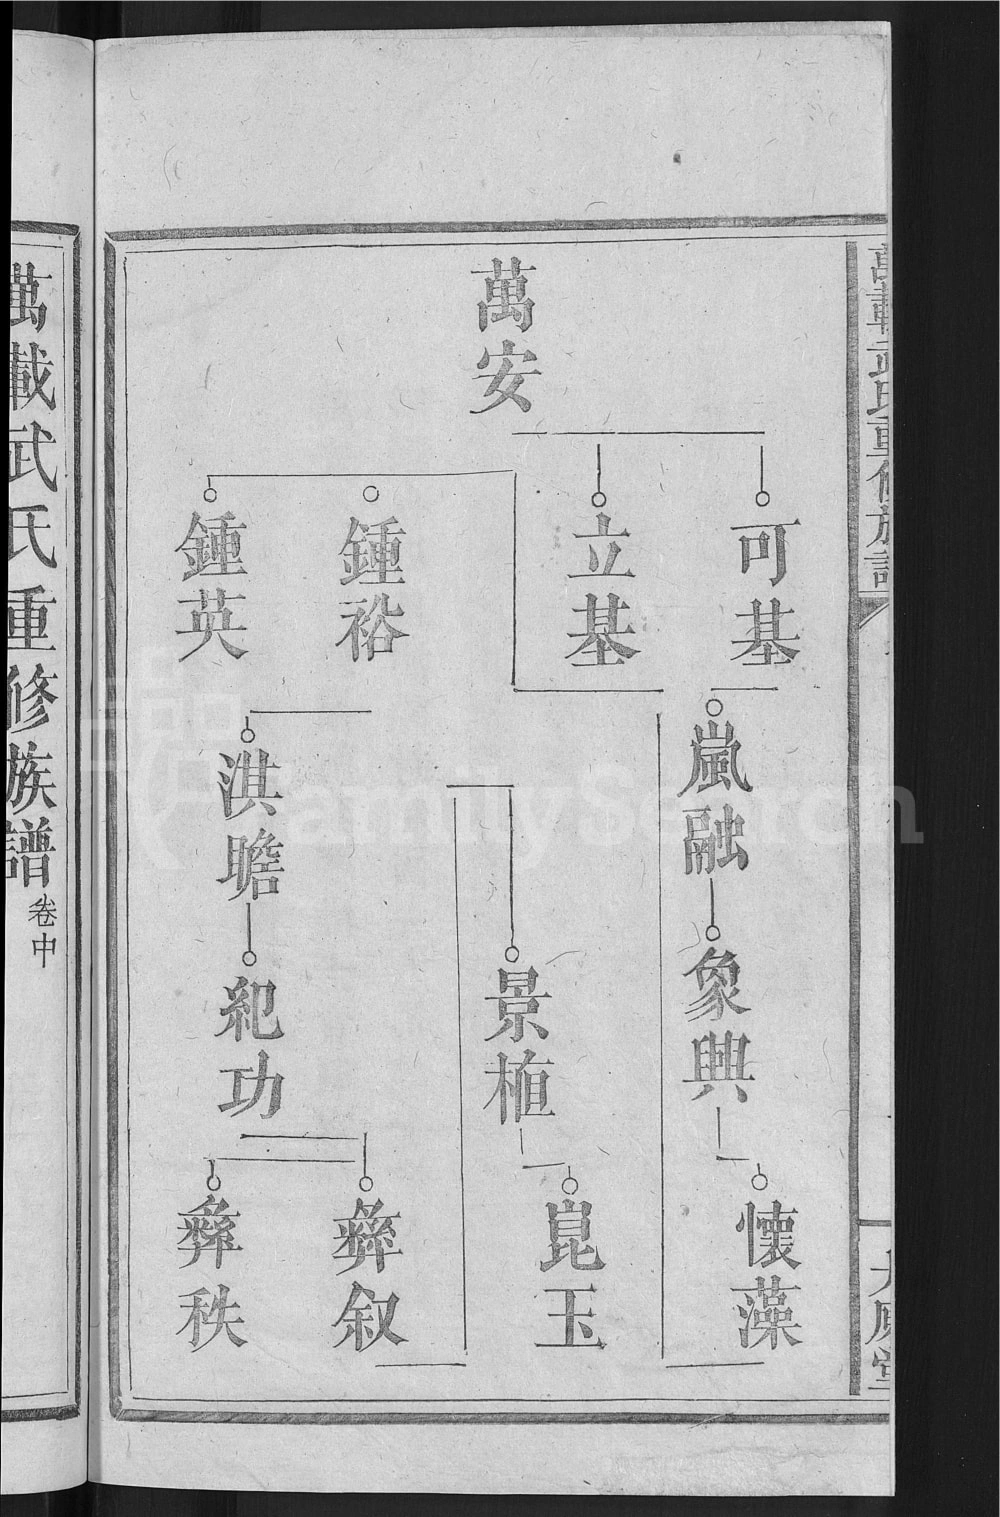 萬載武氏重修族譜
萬安
可基
立基
鍾裕
鍾英
嵐融
淇瞻
象興
景植
紀功
懷藻
崑玉
彝叙
彝秩
萬載武氏重修族譜 卷中
FamilySearch